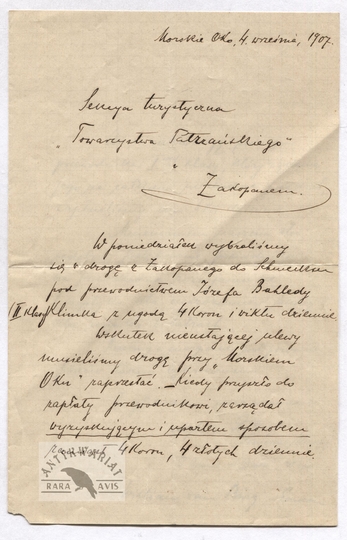 Morskie Oko, 4. września, 1907.
Sekcya turystyczna
"Towarzystwa Tatrzańskiego"
w
Zakopanem.
W poniedziałek wybraliśmy
się w drogę z Zakopanego do Schmecksu
pod przewodnictwem Józefa Bachledy
(II klasy) Klimka z ugodą 4 Koron i wiktu dziennie.
Wskutek nieustającej ulewy
musieliśmy drogę przy "Morskiem
Oku" zaprzestać. – Kiedy przyszło do
zapłaty przewodnikowi, zarządał
wyzyskującym i upartem sposobem
4 Koron, 4 złotych dziennie.
ANTYKWARIAT
RARA AVIS